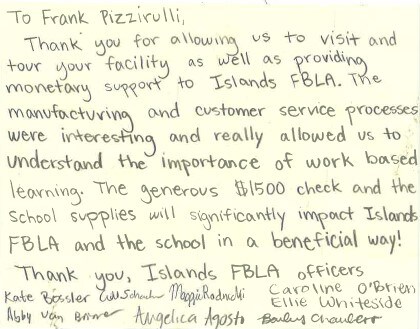 To Frank Pizzirulli,
Thank you for allowing us to visit and
tour your facility as well as providing
monetary support to Islands FBLA. The
manufacturing and customer service processes
were interesting and really allowed us to
understand the importance of work based
learning. The generous $1500 check and the
school supplies will significantly impact Islands
FBLA and the school in a beneficial way!
Thank you, Islands FBLA officers
Kate Bossler Maggie Caroline O'Brien
Ellie Whiteside
Abby Van Angelica Agosto Bailey